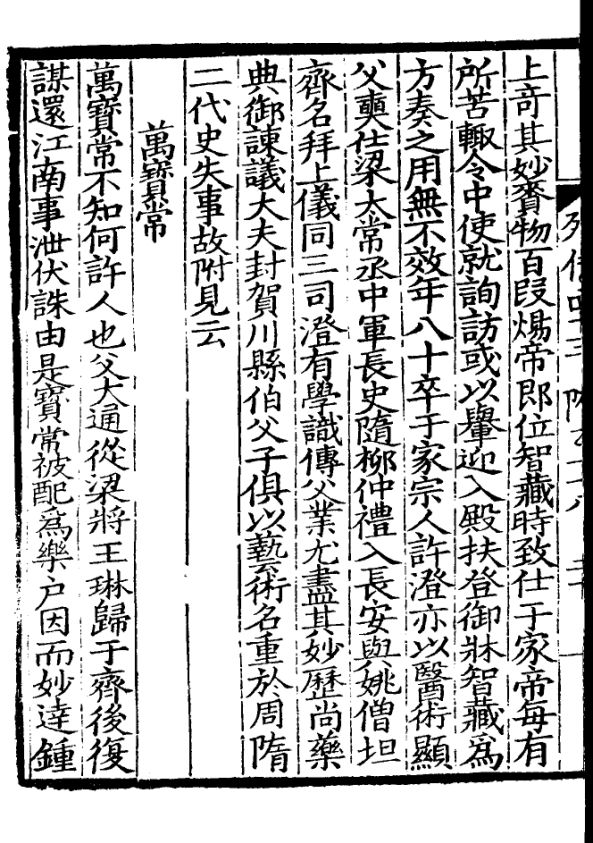 上奇其妙賚物百段煬帝即位智藏時致仕于家帝每有
所苦輙令中使就詢訪或以轝迎入殿扶登御牀智藏爲
方奏之用無不效年八十卒于家宗人許澄亦以醫術顯
父奭仕梁太常丞中軍長史隨柳仲禮入長安與姚僧垣
齊名拜上儀同三司澄有學識傳父業尤盡其妙歷尚藥
典御諫議大夫封賀川縣伯父子俱以藝術名重於周隋
二代史失事故附見云
萬寶常
萬寶常不知何許人也父大通從梁將王琳歸于齊後復
謀還江南事泄伏誅由是寶常被配爲樂户因而妙達鍾